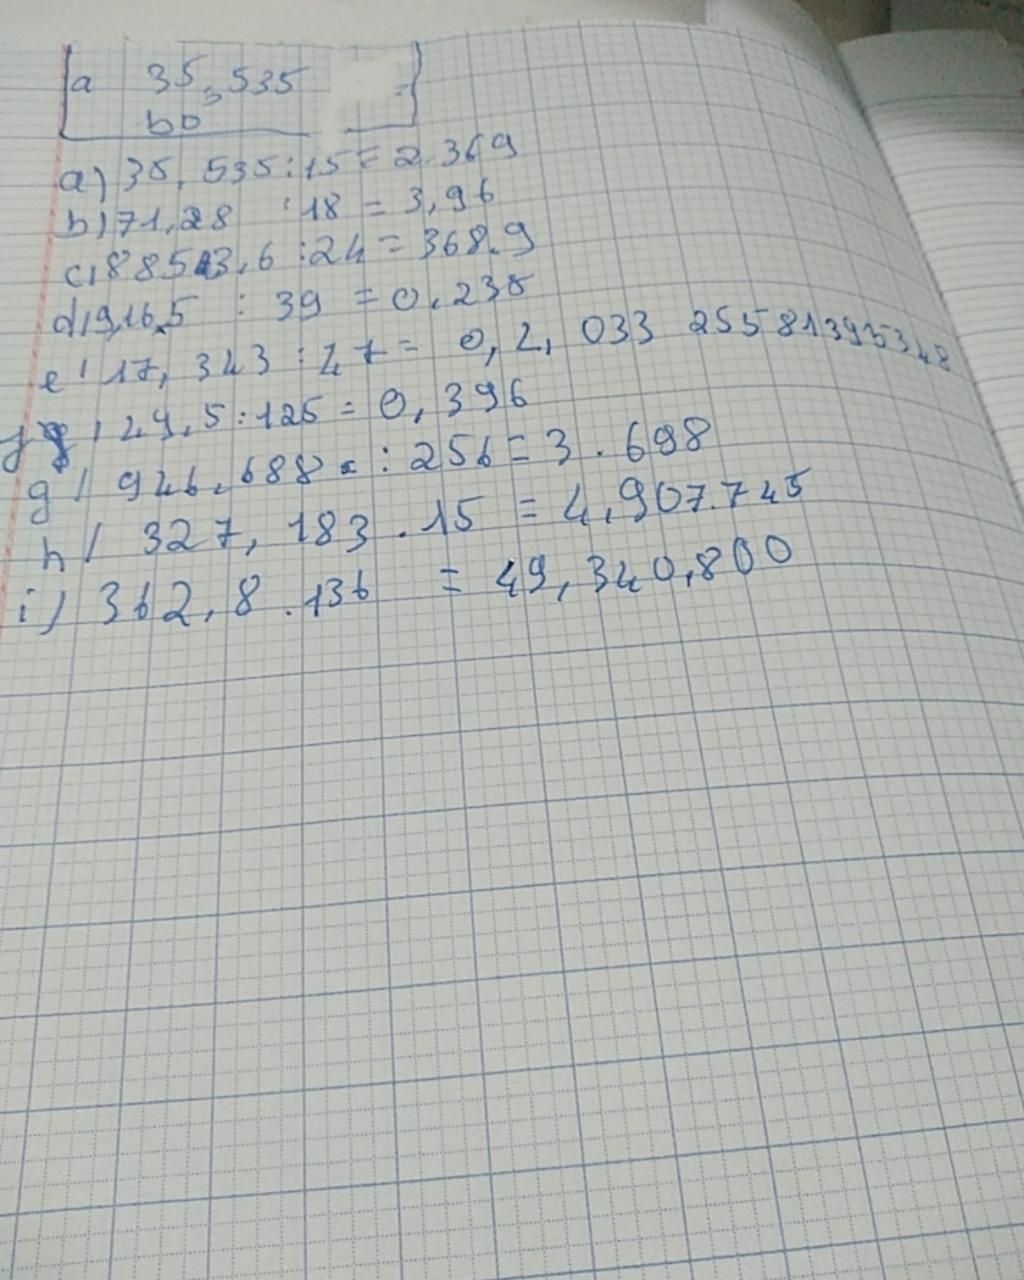 a 35,535 =
bp
a) 35, 535:15 = 2.369
b) 71,28 :18 = 3,96
c, 88513,6 :24 = 368.9
d, 9,16,5 : 39 = 0.235
e 17, 343 : 47 = 0,4, 033 25581395348
f, 49,5:125 = 0,396
g / 946.688 : 256 = 3.698
h / 327, 183 . 15 = 4,907.745
i) 362,8 .136 = 49,340,800